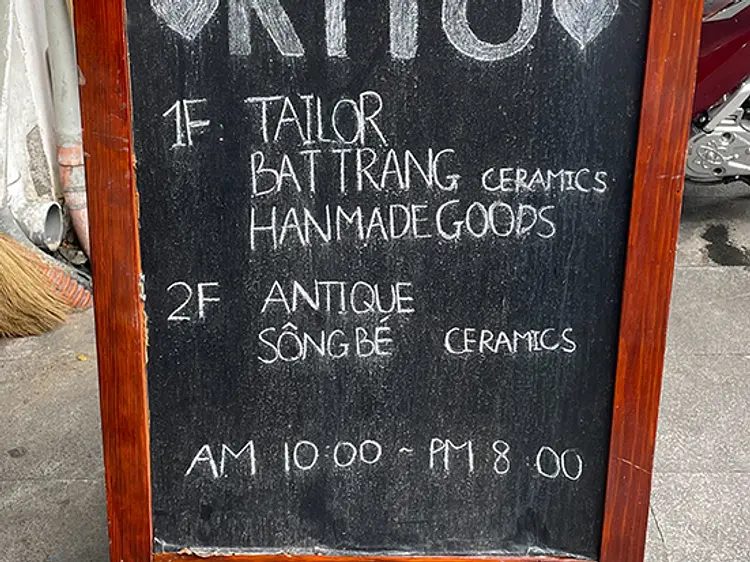 KITO
1F. TAILOR
BAT TRANG CERAMICS
HANMADE GOODS
2F ANTIQUE
SÔNG BÉ CERAMICS
AM 10:00 ~ PM 8:00